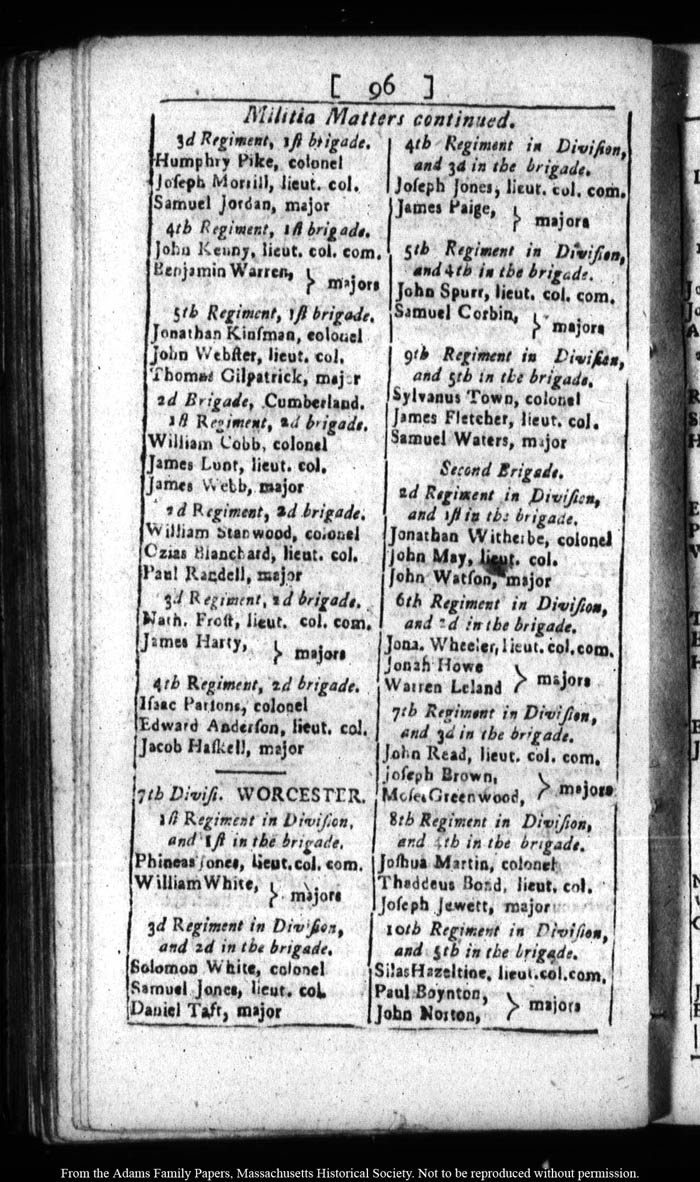 [ 96 ]
Militia Matters continued.
3d Regiment, 1ſt brigade.
Humphry Pike, colonel
Joſeph Morrill, lieut. col.
Samuel Jordan, major
4th Regiment, 1ſt brigade.
John Kenny, lieut. col. com.
Benjamin Warren, } majors
5th Regiment, 1ſt brigade.
Jonathan Kinſman, colonel
John Webſter, lieut. col.
Thomas Gilpatrick, major
2d Brigade, Cumberland.
1ſt Regiment, 2d brigade.
William Cobb, colonel
James Lunt, lieut. col.
James Webb, major
2d Regiment, 2d brigade.
William Stanwood, colonel
Ozias Blanchard, lieut. col.
Paul Randell, major
3d Regiment, 2d brigade.
Nath. Froſt, lieut. col. com.
James Harty, } majors
4th Regiment, 2d brigade.
Iſaac Parſons, colonel
Edward Anderſon, lieut. col.
Jacob Haſkell, major
7th Diviſi. WORCESTER.
1ſt Regiment in Diviſion,
and 1ſt in the brigade.
Phineas Jones, lieut. col. com.
William White, } majors
3d Regiment in Diviſion,
and 2d in the brigade.
Solomon White, colonel
Samuel Jones, lieut. col.
Daniel Taft, major
4th Regiment in Diviſion,
and 3d in the brigade.
Joſeph Jones, lieut. col. com.
James Paige, } majors
5th Regiment in Diviſion,
and 4th in the brigade.
John Spurr, lieut. col. com.
Samuel Corbin, } majors
9th Regiment in Diviſion,
and 5th in the brigade.
Sylvanus Town, colonel
James Fletcher, lieut. col.
Samuel Waters, major
Second Brigade.
2d Regiment in Diviſion,
and 1ſt in the brigade.
Jonathan Witherbe, colonel
John May, lieut. col.
John Watſon, major
6th Regiment in Diviſion,
and 2d in the brigade.
Jona. Wheeler, lieut. col. com.
Jonah Howe
Warren Leland } majors
7th Regiment in Diviſion,
and 3d in the brigade.
John Read, lieut. col. com.
Joſeph Brown,
Moſes Greenwood, } majors
8th Regiment in Diviſion,
and 4th in the brigade.
Joſhua Martin, colonel
Thaddeus Bond, lieut. col.
Joſeph Jewett, major
10th Regiment in Diviſion,
and 5th in the brigade.
Silas Hazeltine, lieut. col. com.
Paul Boynton,
John Norton, } majors
From the Adams Family Papers, Massachusetts Historical Society. Not to be reproduced without permission.